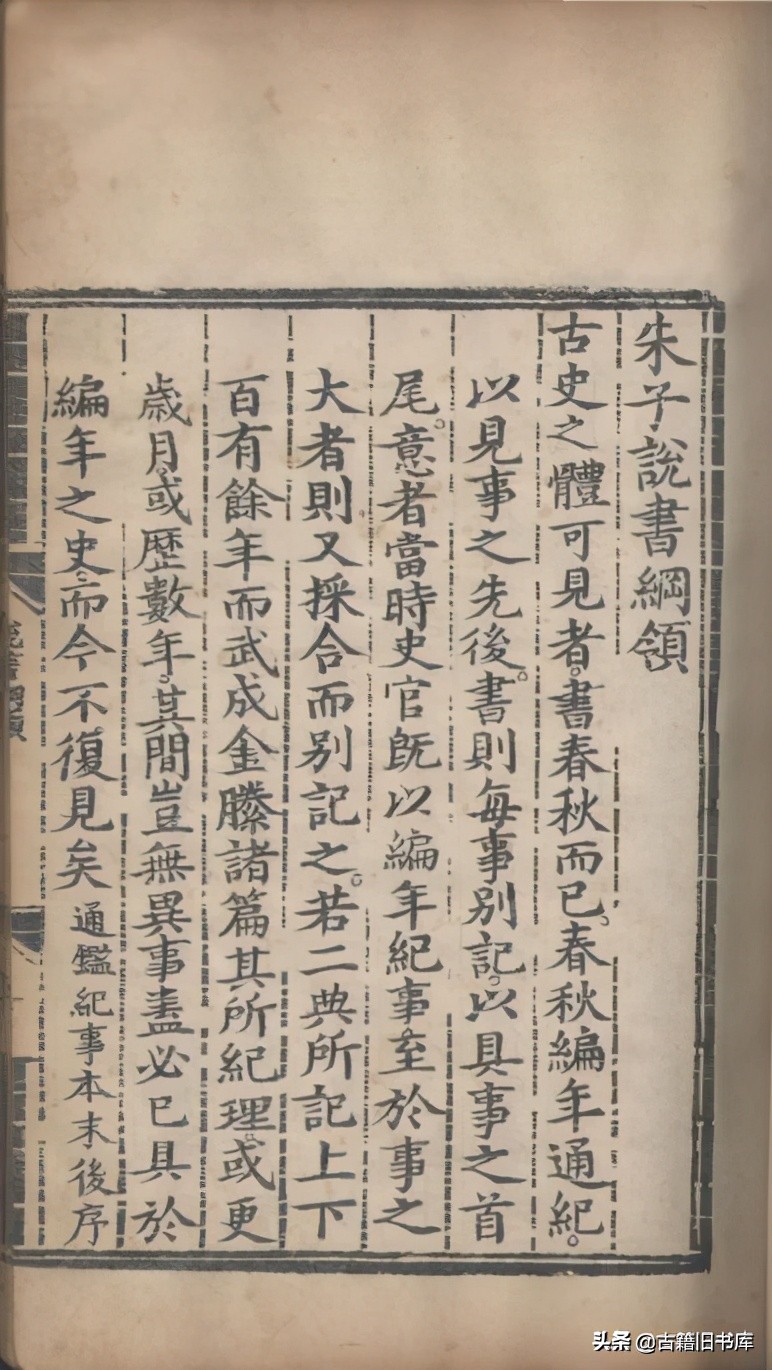 朱子說書綱領
古史之體可見者書春秋而已春秋編年通紀
以見事之先後書則每事別記以具事之首
尾意者當時史官旣以編年紀事至於事之
大者則又採合而别記之若二典所記上下
百有餘年而武成金縢諸篇其所紀理或更
歲月或歷數年其間豈無異事盖必已具於
編年之史而今不復見矣通鑑紀事本末後序
頭条 @古籍旧书库